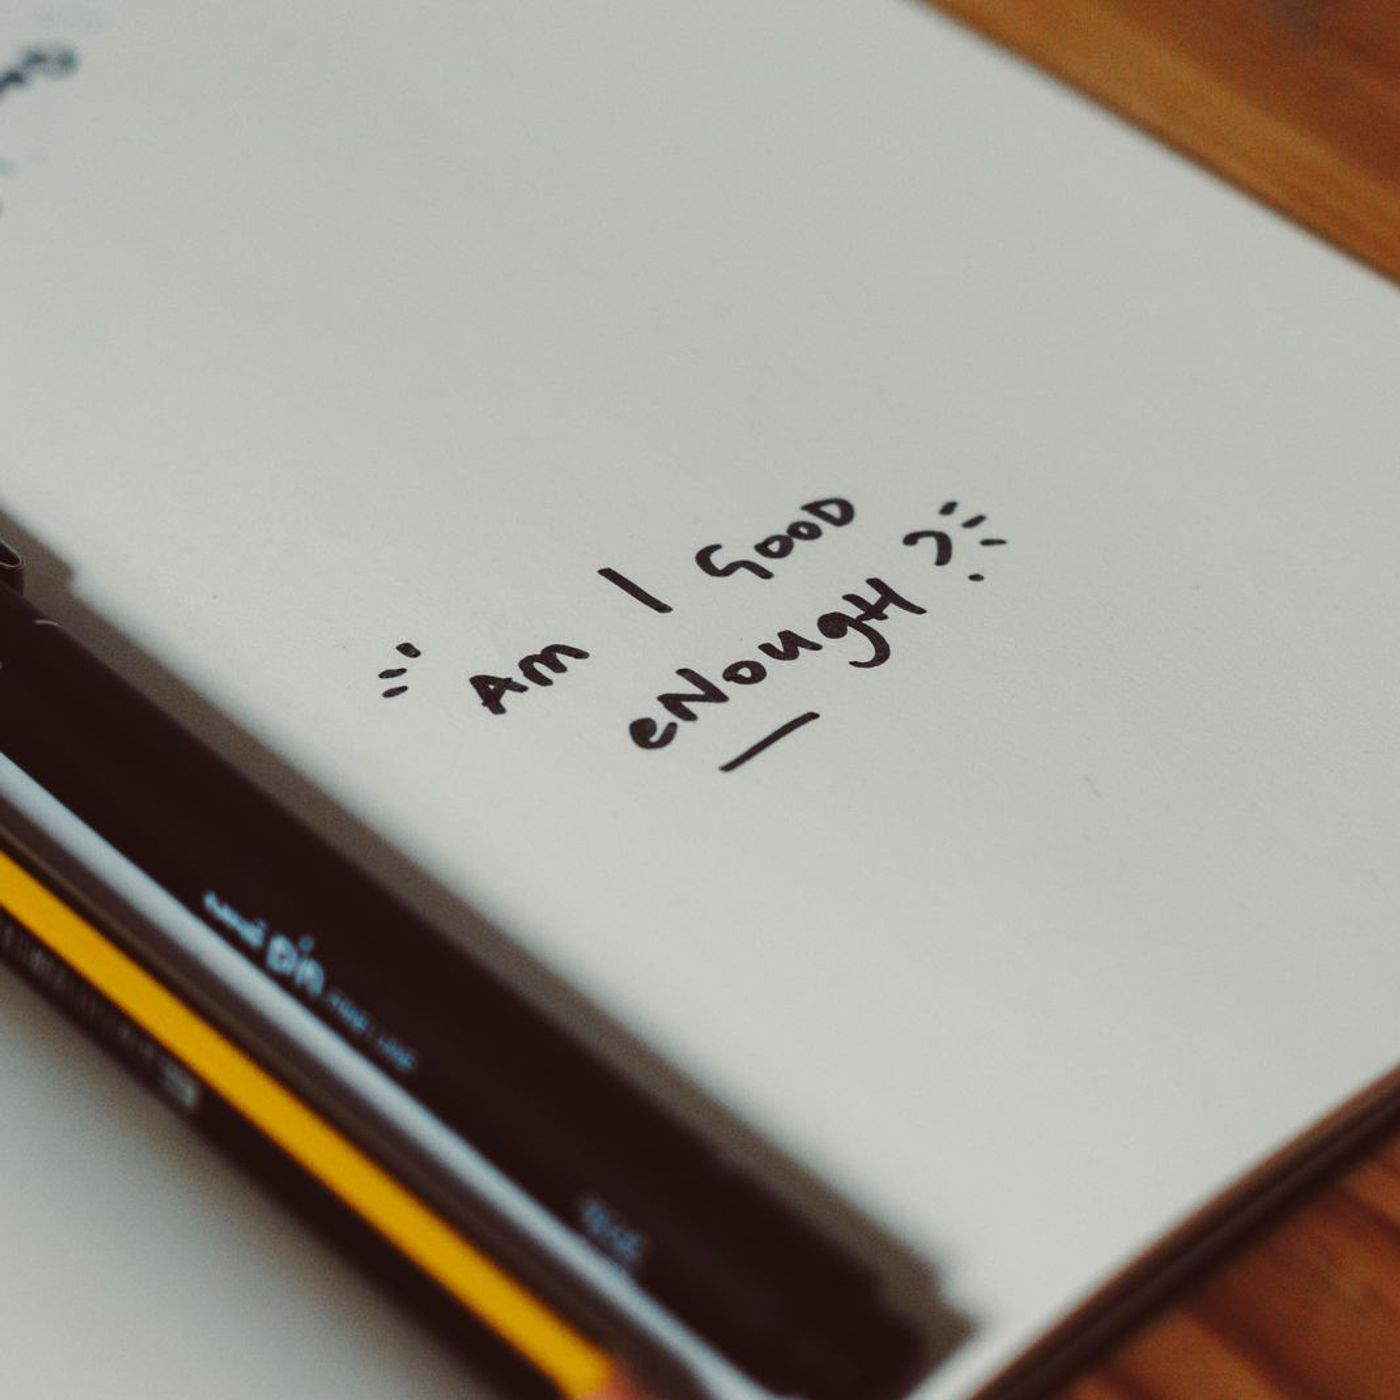 Am I GooD
eNougH ?
uni pin FINE LINE